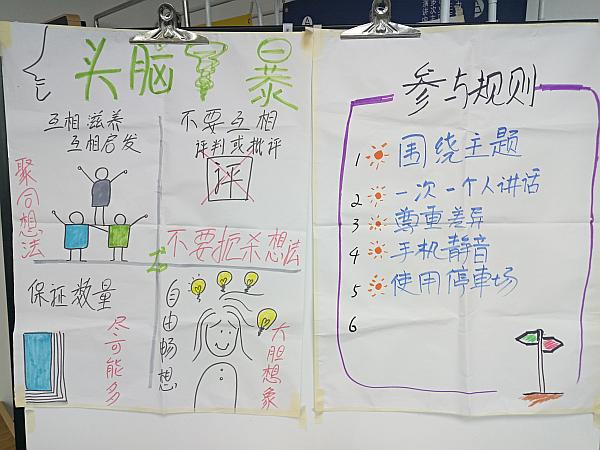 头脑风暴
互相滋养
互相启发
聚同想法
不要互相
评判或批评
评
不要扼杀想法
保证数量
尽可能多
自由畅想
大胆想象
参与规则
1 围绕主题
2 一次一个人讲话
3 尊重差异
4 手机静音
5 使用停車场
6